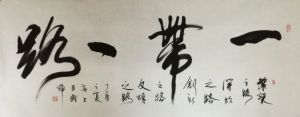 一帶一路
繁榮
之路
開放
之路
創新
之路
文明
之路
丁酉
之夏